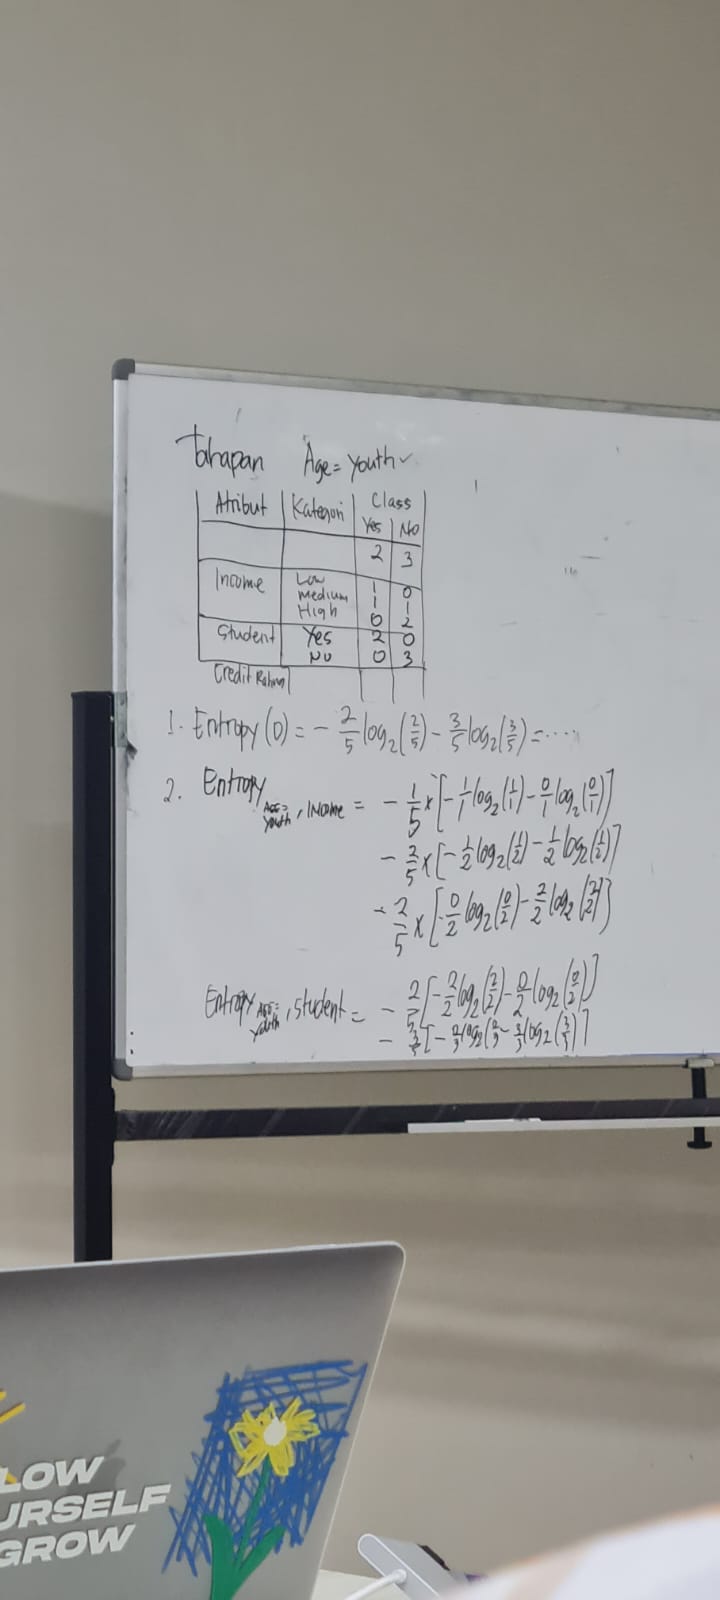 Tahapan Age = Youth ✓
Atribut Kategori Class
Yes No
2 3
Income Low 1 0
Medium 1 1
High 0 2
Student Yes 2 0
No 0 3
Credit Rating
1. Entropy (D) = - 2/5 log2 (2/5) - 3/5 log2 (3/5) = ....
2. Entropy Age = Youth, Income = - 1/5 x [- 1/1 log2 (1/1) - 0/1 log2 (0/1)]
- 2/5 x [- 1/2 log2 (1/2) - 1/2 log2 (1/2)]
- 2/5 x [- 0/2 log2 (0/2) - 2/2 log2 (2/2)]
Entropy Age = Youth, Student = - 2/5 [- 2/2 log2 (2/2) - 0/2 log2 (0/2)]
- 3/5 [- 0/3 log2 (0/3 - 3/3 log2 (3/3)]
LOW
URSELF
GROW